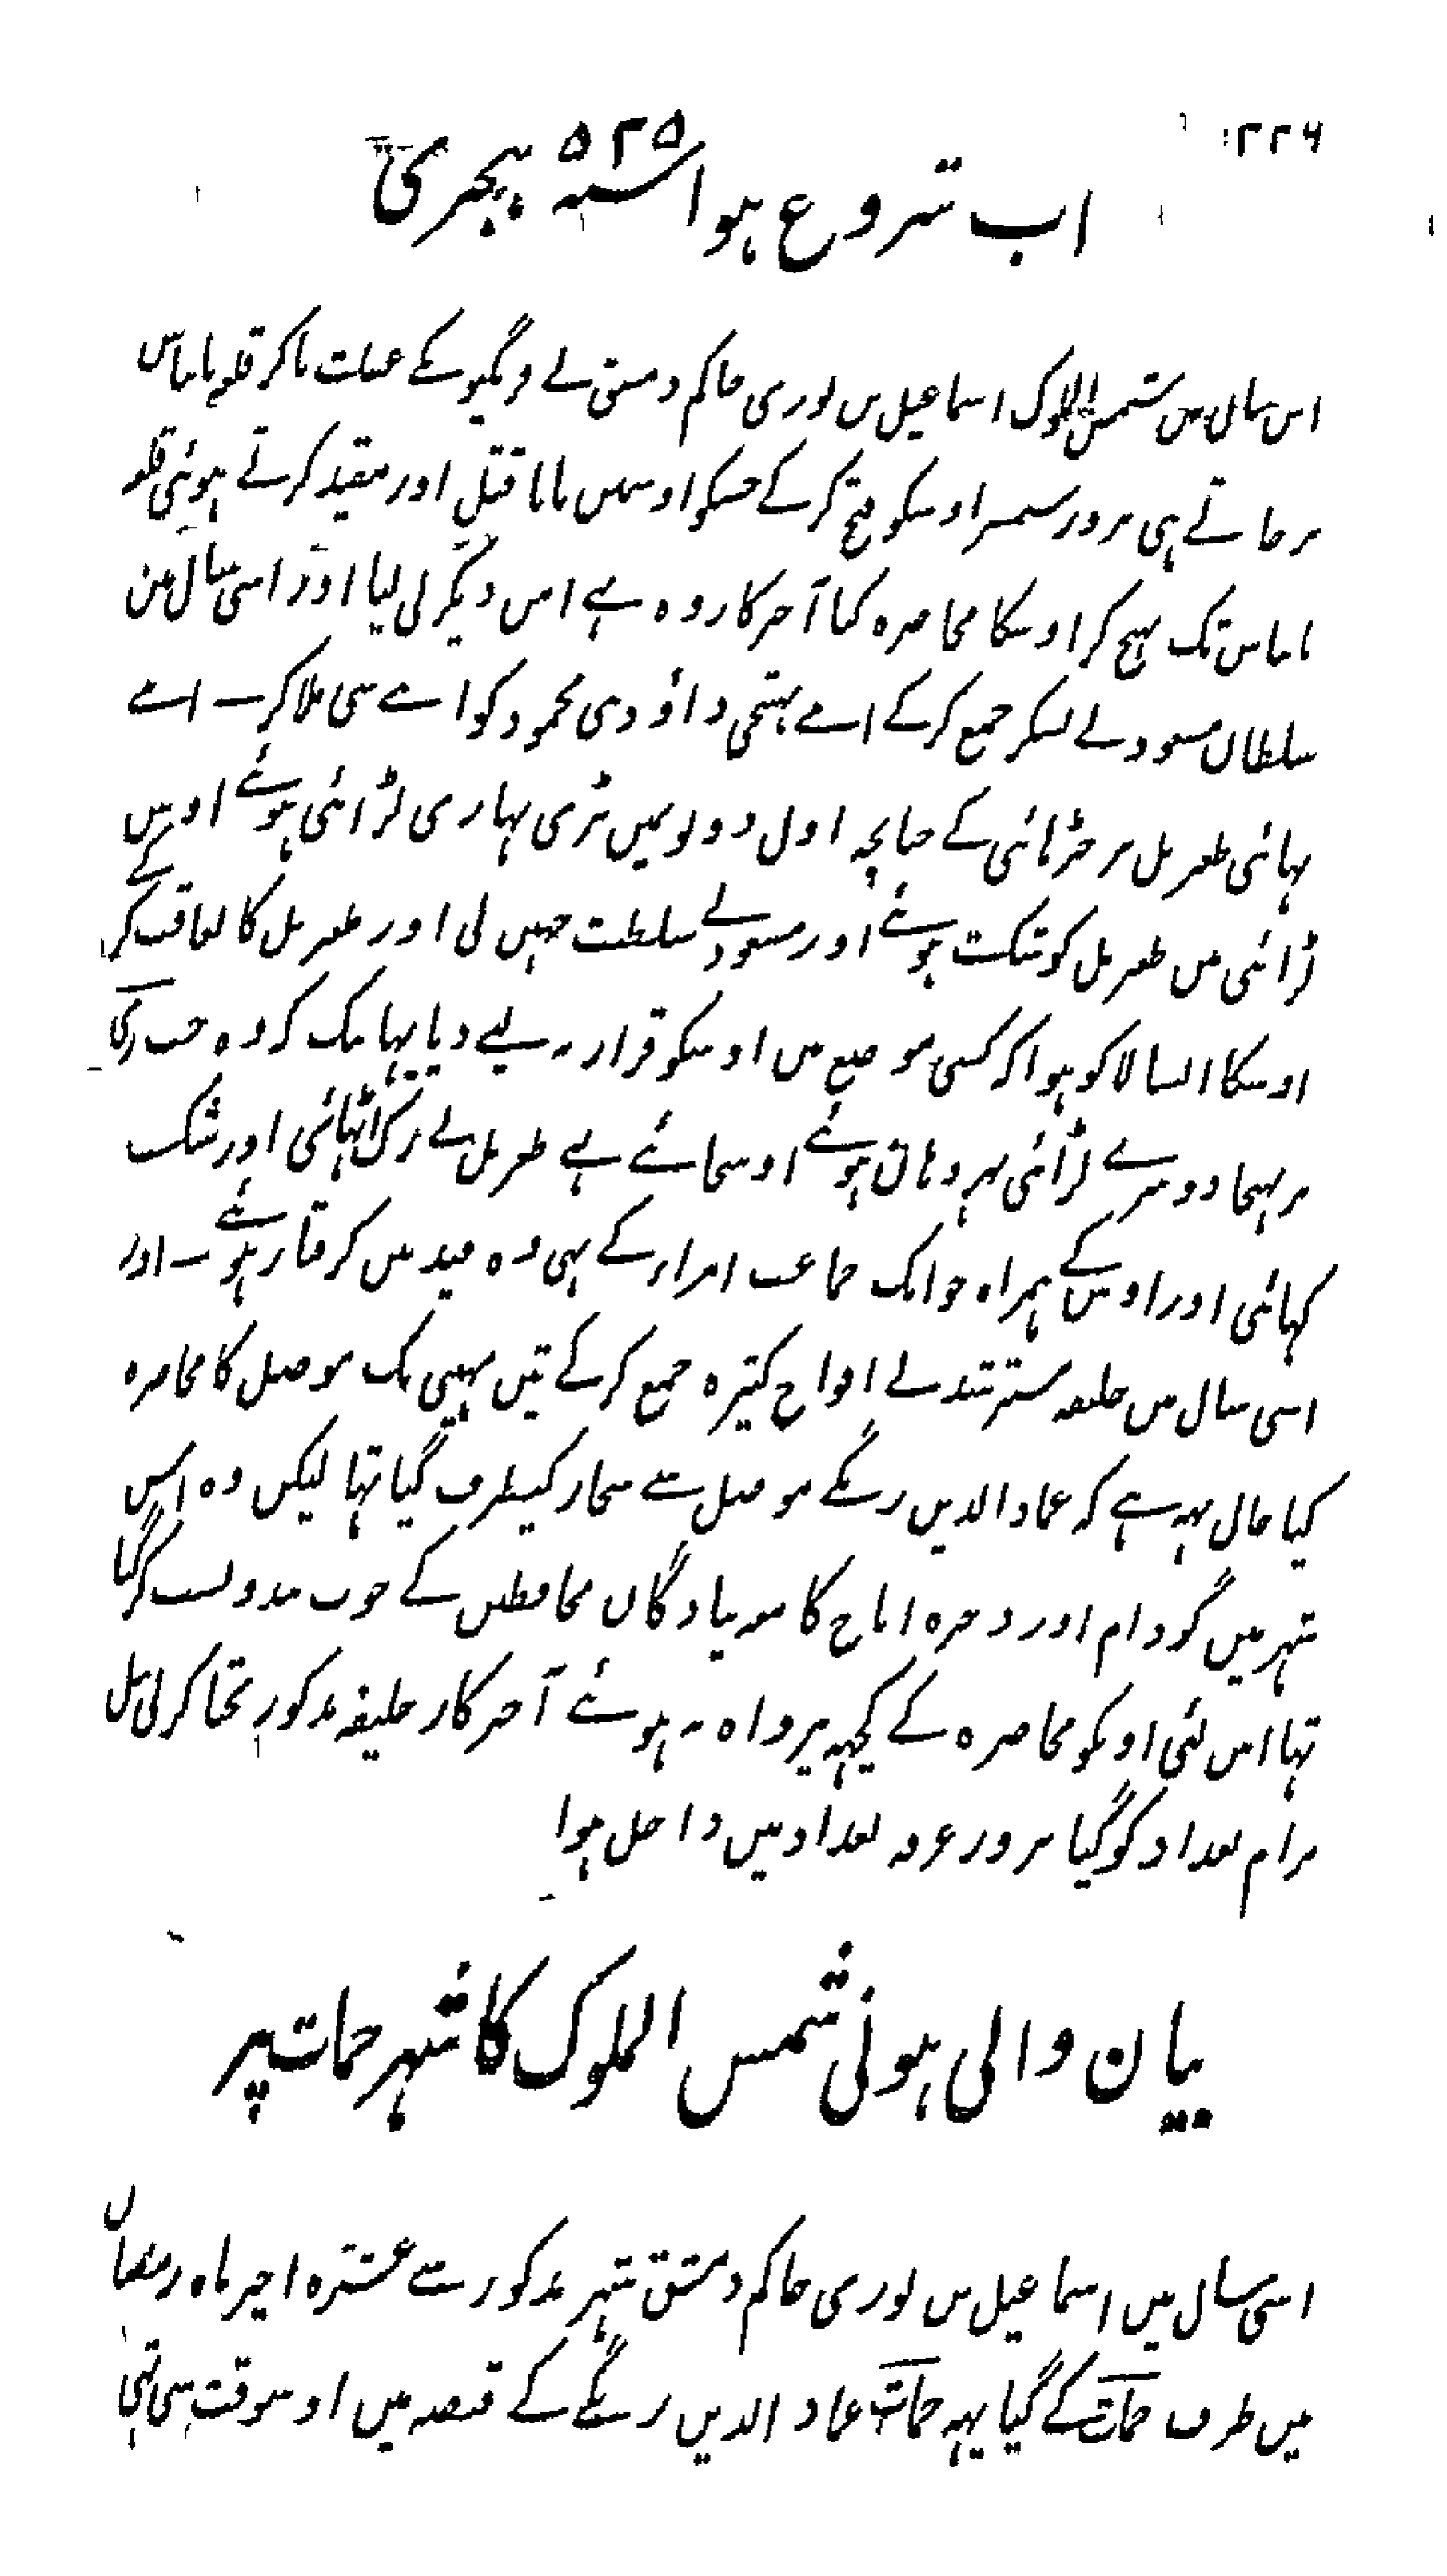 ۲۲۶
اب شروع ہوا سنہ ۵۲۵ ہجری
اس سال میں شمس الملوک اسماعیل بن بوری حاکم دمشق نے فرنگیو کے غفلت پاکر قلعہ بانیاس
پر جاتے ہی بزور شمشیر اوسکو فتح کرکے جسکو اوسمیں پایا قتل اور مقید کرتے ہوئی قلعہ
بانیاس تک پہنچ کر اوسکا محاصرہ کیا آخر کار وہ بے امن دیگر لی لیا اور اسی سال مین
سلطان مسعود نے لشکر جمع کرکے اپنے بہتیجی داؤد بن محمود کو اپنے سی ملاکر اپنے
بہائی طغربل پر چڑہائی کے چنانچہ اول دونونمیں بڑی بہاری لڑائی ہوئے اوس
لڑائی میں طغربل کو شکست ہوئے اور مسعود نے سلطنت چہین لی اور طغربل کا تعاقب کرکے
اوسکا ایسا لاگو ہوا کہ کسی موضع میں اوسکو قرار نہ لینے دیا یہانتک کہ وہ جب رے
پر پہنچا دوسرے لڑائی پہر وہان ہوئے اوسجائے بہے طغربل نے زک اُٹہائی اور شکست
کہائی اور اوس کے ہمراہ جو ایک جماعت امراء کے تہی وہ قید میں گرفتار ہوئے اور
اسی سال میں خلیفہ مسترشد نے افواج کثیرہ جمع کرکے تین مہینی تک موصل کا محاصرہ
کیا حال یہہ ہے کہ عماد الدین زنگے موصل سے سنجار کیطرف گیا تہا لیکن وہ اس
شہر میں گودام اور ذخیرہ اناج کا معہ پیادگان محافظین کے خوب بندوبست کر گیا
تہا اس لئی اونکو محاصرہ کے کچہہ پرواہ نہ ہوئے آخر کار خلیفہ مذکور تھا کر نی نیل
مرام بغداد کو گیا بروز عرفہ بغداد میں داخل ہوا
بیان والی ہونی شمس الملوک کا شہر حمات پر
اسی سال میں اسماعیل بن بوری حاکم دمشق شہر مذکور سے عشرہ اخیر ماہ رمضان
میں طرف حمات کے گیا یہہ حمات عماد الدین زنگے کے قبضہ میں اوسوقت سی تہی